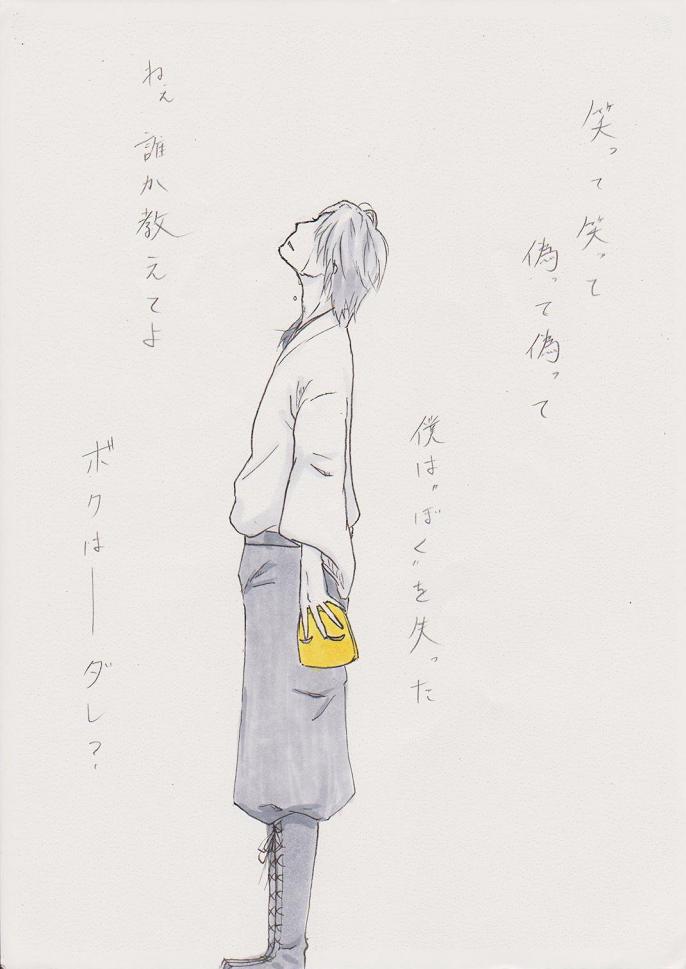 笑って笑って
偽って偽って
僕は"ばく"を失った
ねぇ 誰か教えてよ
ボクは――ダレ?